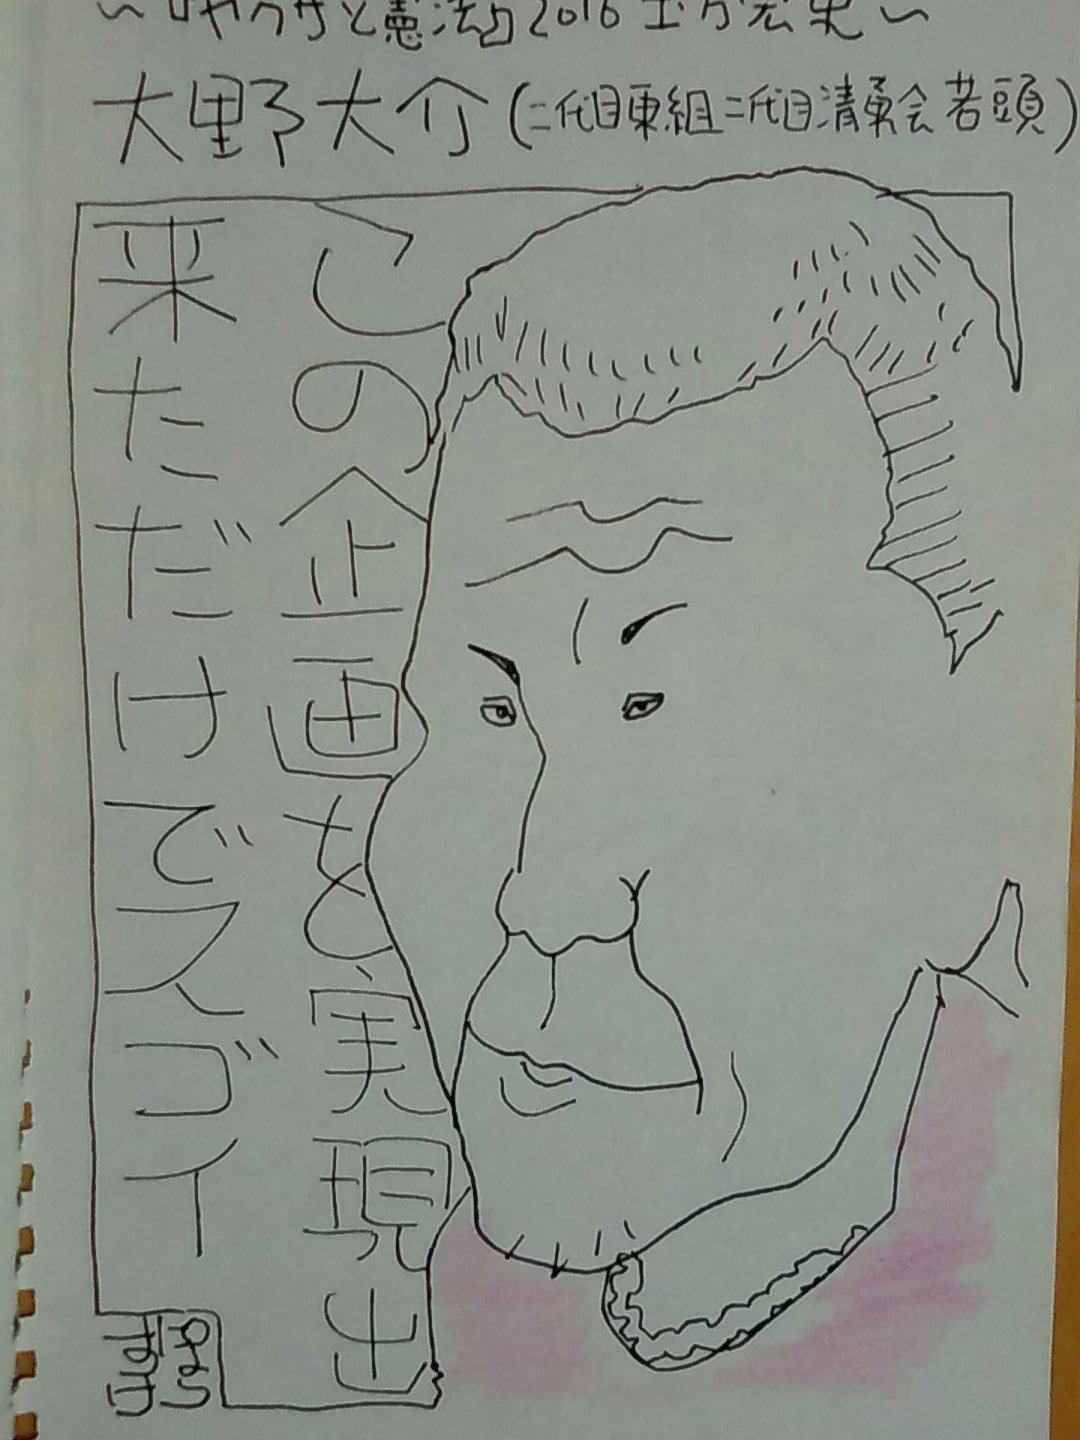 ～『ヤクザと憲法』2016 土方宏史～
大野大介(二代目東組二代目清勇会若頭)
この企画を実現出
来ただけでスゴイ
ぽち
まけ